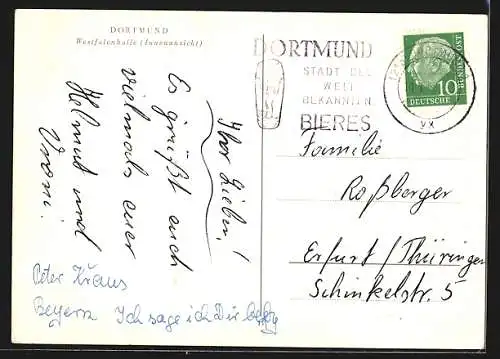 DORTMUND
Westfalenhalle (Innenansicht)
Ihr Lieben!
Es grüßt euch
vielmals euer
Helmut und
Vroni.
Peter Kraus
Ich sage ich Dir
DORTMUND
STADT DES
WELT
BEKANNTEN
BIERES
10
DEUTSCHE
BUNDESPOST
Familie
Roßberger
Erfurt/Thüringen
Schinkelstr. 5